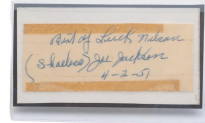 Best of Luck Nelson
(Shoeless) Joe Jackson
4-2-51